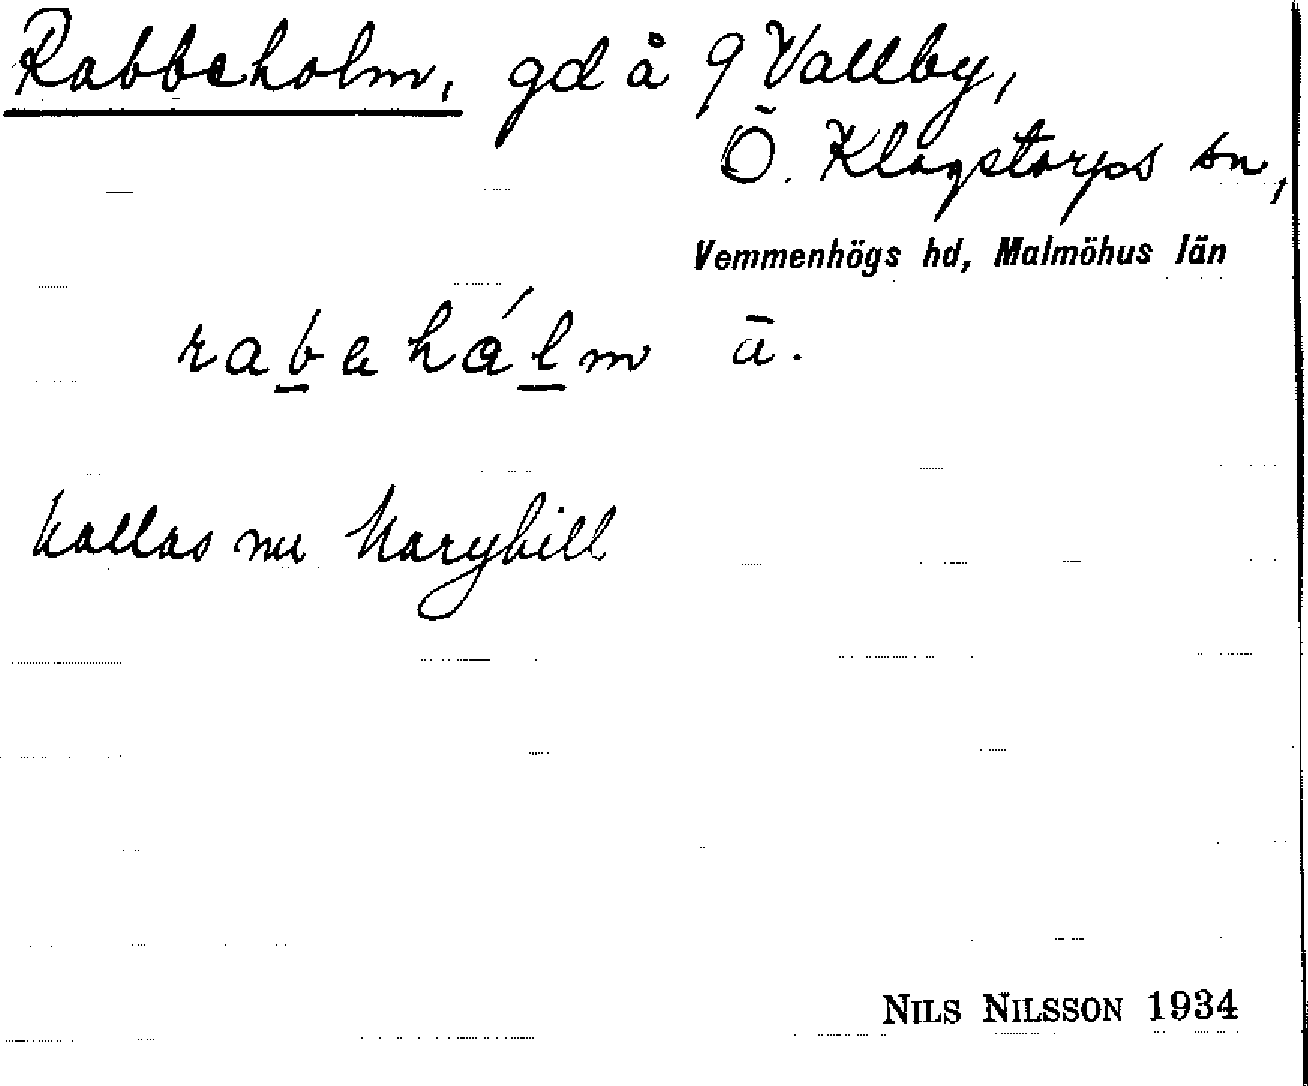 Rabbeholm, gd å 9 Vallby,
Ö. Klagstorps sn,
Vemmenhögs hd, Malmöhus län
rabahálm ā.
kallas nu Maryhill
NILS NILSSON 1934